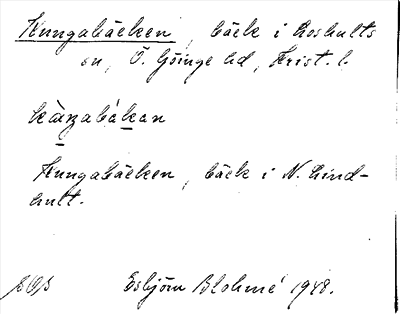 Kungabäcken, bäck i Loshults
sn, Ö. Göinge hd, Krist. l.
Kungabäcken, bäck i N. Lind-
hult.
Esbjörn Blohmé 1948.